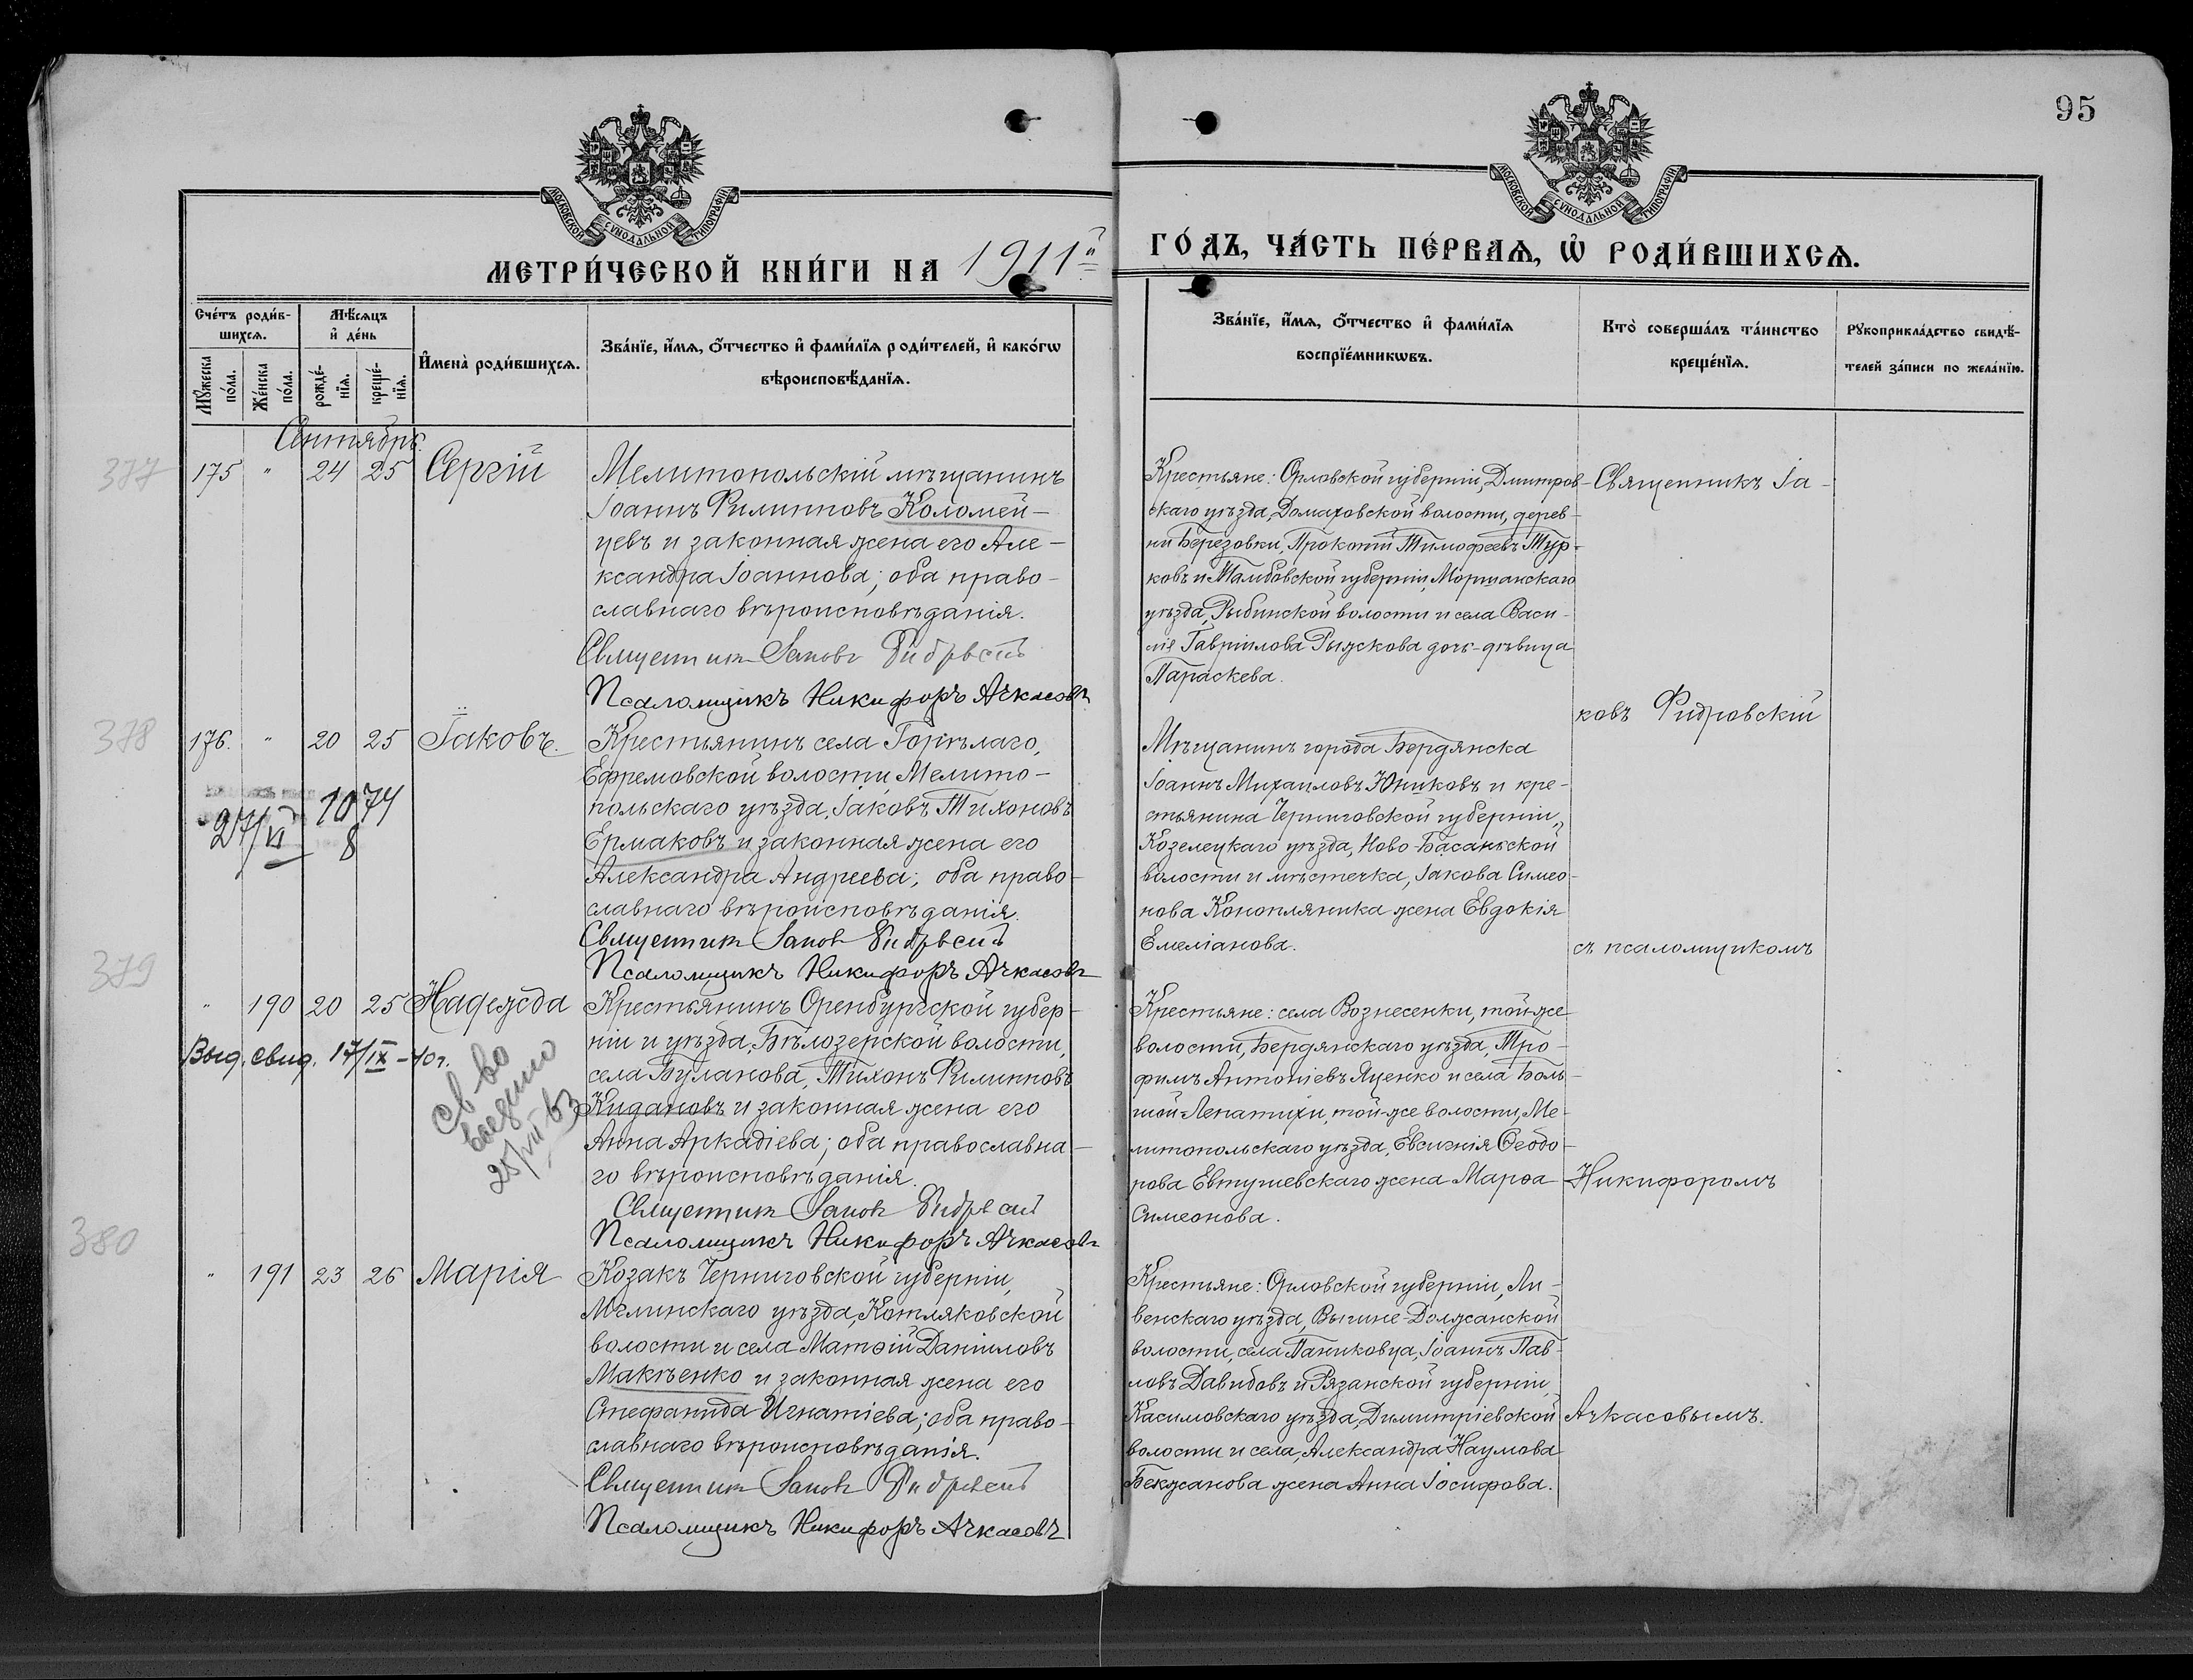 95
МОСКОВСКОЙ СѴНОДАЛЬНОЙ ТИПОГРАФІИ
МОСКОВСКОЙ СѴНОДАЛЬНОЙ ТИПОГРАФІИ
МЕТРИ́ЧЕСКОЙ КНИ́ГИ НА 1911й
ГО́ДЪ, ЧА́СТЬ ПЕ́РВАѦ, Ѡ҆ РОДИ́ВШИХСѦ.
Сче́тъ роди́в-
шихсѧ.
Мѣ́сѧцъ
и҆ де́нь
Мꙋ́жеска
по́ла.
Же́нска
по́ла.
рожде́-
нїѧ.
креще́-
нїѧ.
И҆мена̀ роди́вшихсѧ.
Зва́нїе, и҆́мѧ, ѻ҆́тчество и҆ фами́лїѧ роди́телей, и҆ како́гѡ
вѣроисповѣ́данїѧ.
Зва́нїе, и҆́мѧ, ѻ҆́тчество и҆ фами́лїѧ
воспрїе́мникѡвъ.
Кто̀ соверша́лъ та́инство
креще́нїѧ.
Рꙋкоприкла́дство свидѣ́-
телей за́писи по жела́нїю.
Сентябрь.
377
175 " 24 25 Сергій
Мелитопольскій мѣщанинъ
Іоаннъ Филипповъ Коломей-
цевъ и законная жена его Але-
ксандра Іоаннова; оба право-
славнаго вѣроисповѣданія.
Священникъ Іаковъ Фидровскій
Псаломщикъ Никифоръ Ачкасовъ
Крестьяне: Орловской губерніи, Дмитров-
скаго уѣзда, Домаховской волости, дерев-
ни Березовки, Прокопій Тимофеевъ Тур-
ковъ и Тамбовской губерніи, Моршанскаго
уѣзда, Рыбинской волости и села Васи-
лія Гавріилова Рыжкова дочь-дѣвица
Параскева.
Священникъ Іа-
ковъ Фидровскій
378
176. " 20 25 Іаковъ.
27/VI 1074
8
Крестьянинъ села Горѣлаго,
Ефремовской волости Мелито-
польскаго уѣзда, Іаковъ Тихоновъ
Ермаковъ и законная жена его
Александра Андреева; оба право-
славнаго вѣроисповѣданія.
Священникъ Іаковъ Фидровскій
Псаломщикъ Никифоръ Ачкасовъ
Мѣщанинъ города Бердянска
Іоаннъ Михаиловъ Юниковъ и кре-
стьянина Черниговской губерніи,
Козелецкаго уѣзда, Ново-Басанской
волости и мѣстечка, Іакова Симео-
нова Конопляника жена Евдокія
Емеліанова.
съ псаломщикомъ
379
" 190 20 25 Надежда
Выд. свид. 17/IX-40г.
св-во
выдано
25/VII
Крестьянинъ Оренбургской губер-
ніи и уѣзда, Бѣлозерской волости,
села Буланова, Тихонъ Филипповъ
Кидановъ и законная жена его
Анна Аркадіева; оба православна-
го вѣроисповѣданія.
Священникъ Іаковъ Фидровскій
Псаломщикъ Никифоръ Ачкасовъ
Крестьяне: села Вознесенки, той-же
волости, Бердянскаго уѣзда, Тро-
фимъ Антоніевъ Яценко и села Боль-
шой Лепатихи, той-же волости, Ме-
литопольскаго уѣзда, Евсигнія Ѳеодо-
рова Евтушевскаго жена Марѳа
Симеонова.
Никифоромъ
380
" 191 23 26 Марія
Козакъ Черниговской губерніи,
Мглинскаго уѣзда, Котляковской
волости и села Матѳій Даніиловъ
Макѣенко и законная жена его
Стефанида Игнатіева; оба право-
славнаго вѣроисповѣданія.
Священникъ Іаковъ Фидровскій
Псаломщикъ Никифоръ Ачкасовъ
Крестьяне: Орловской губерніи, Ли-
венскаго уѣзда, Вышне-Должанской
волости, села Паниковца, Іоаннъ Пав-
ловъ Давыдовъ и Рязанской губерніи,
Касимовскаго уѣзда, Димитріевской
волости и села, Александра Наумова
Бекжанова жена Анна Іосифова.
Ачкасовымъ.